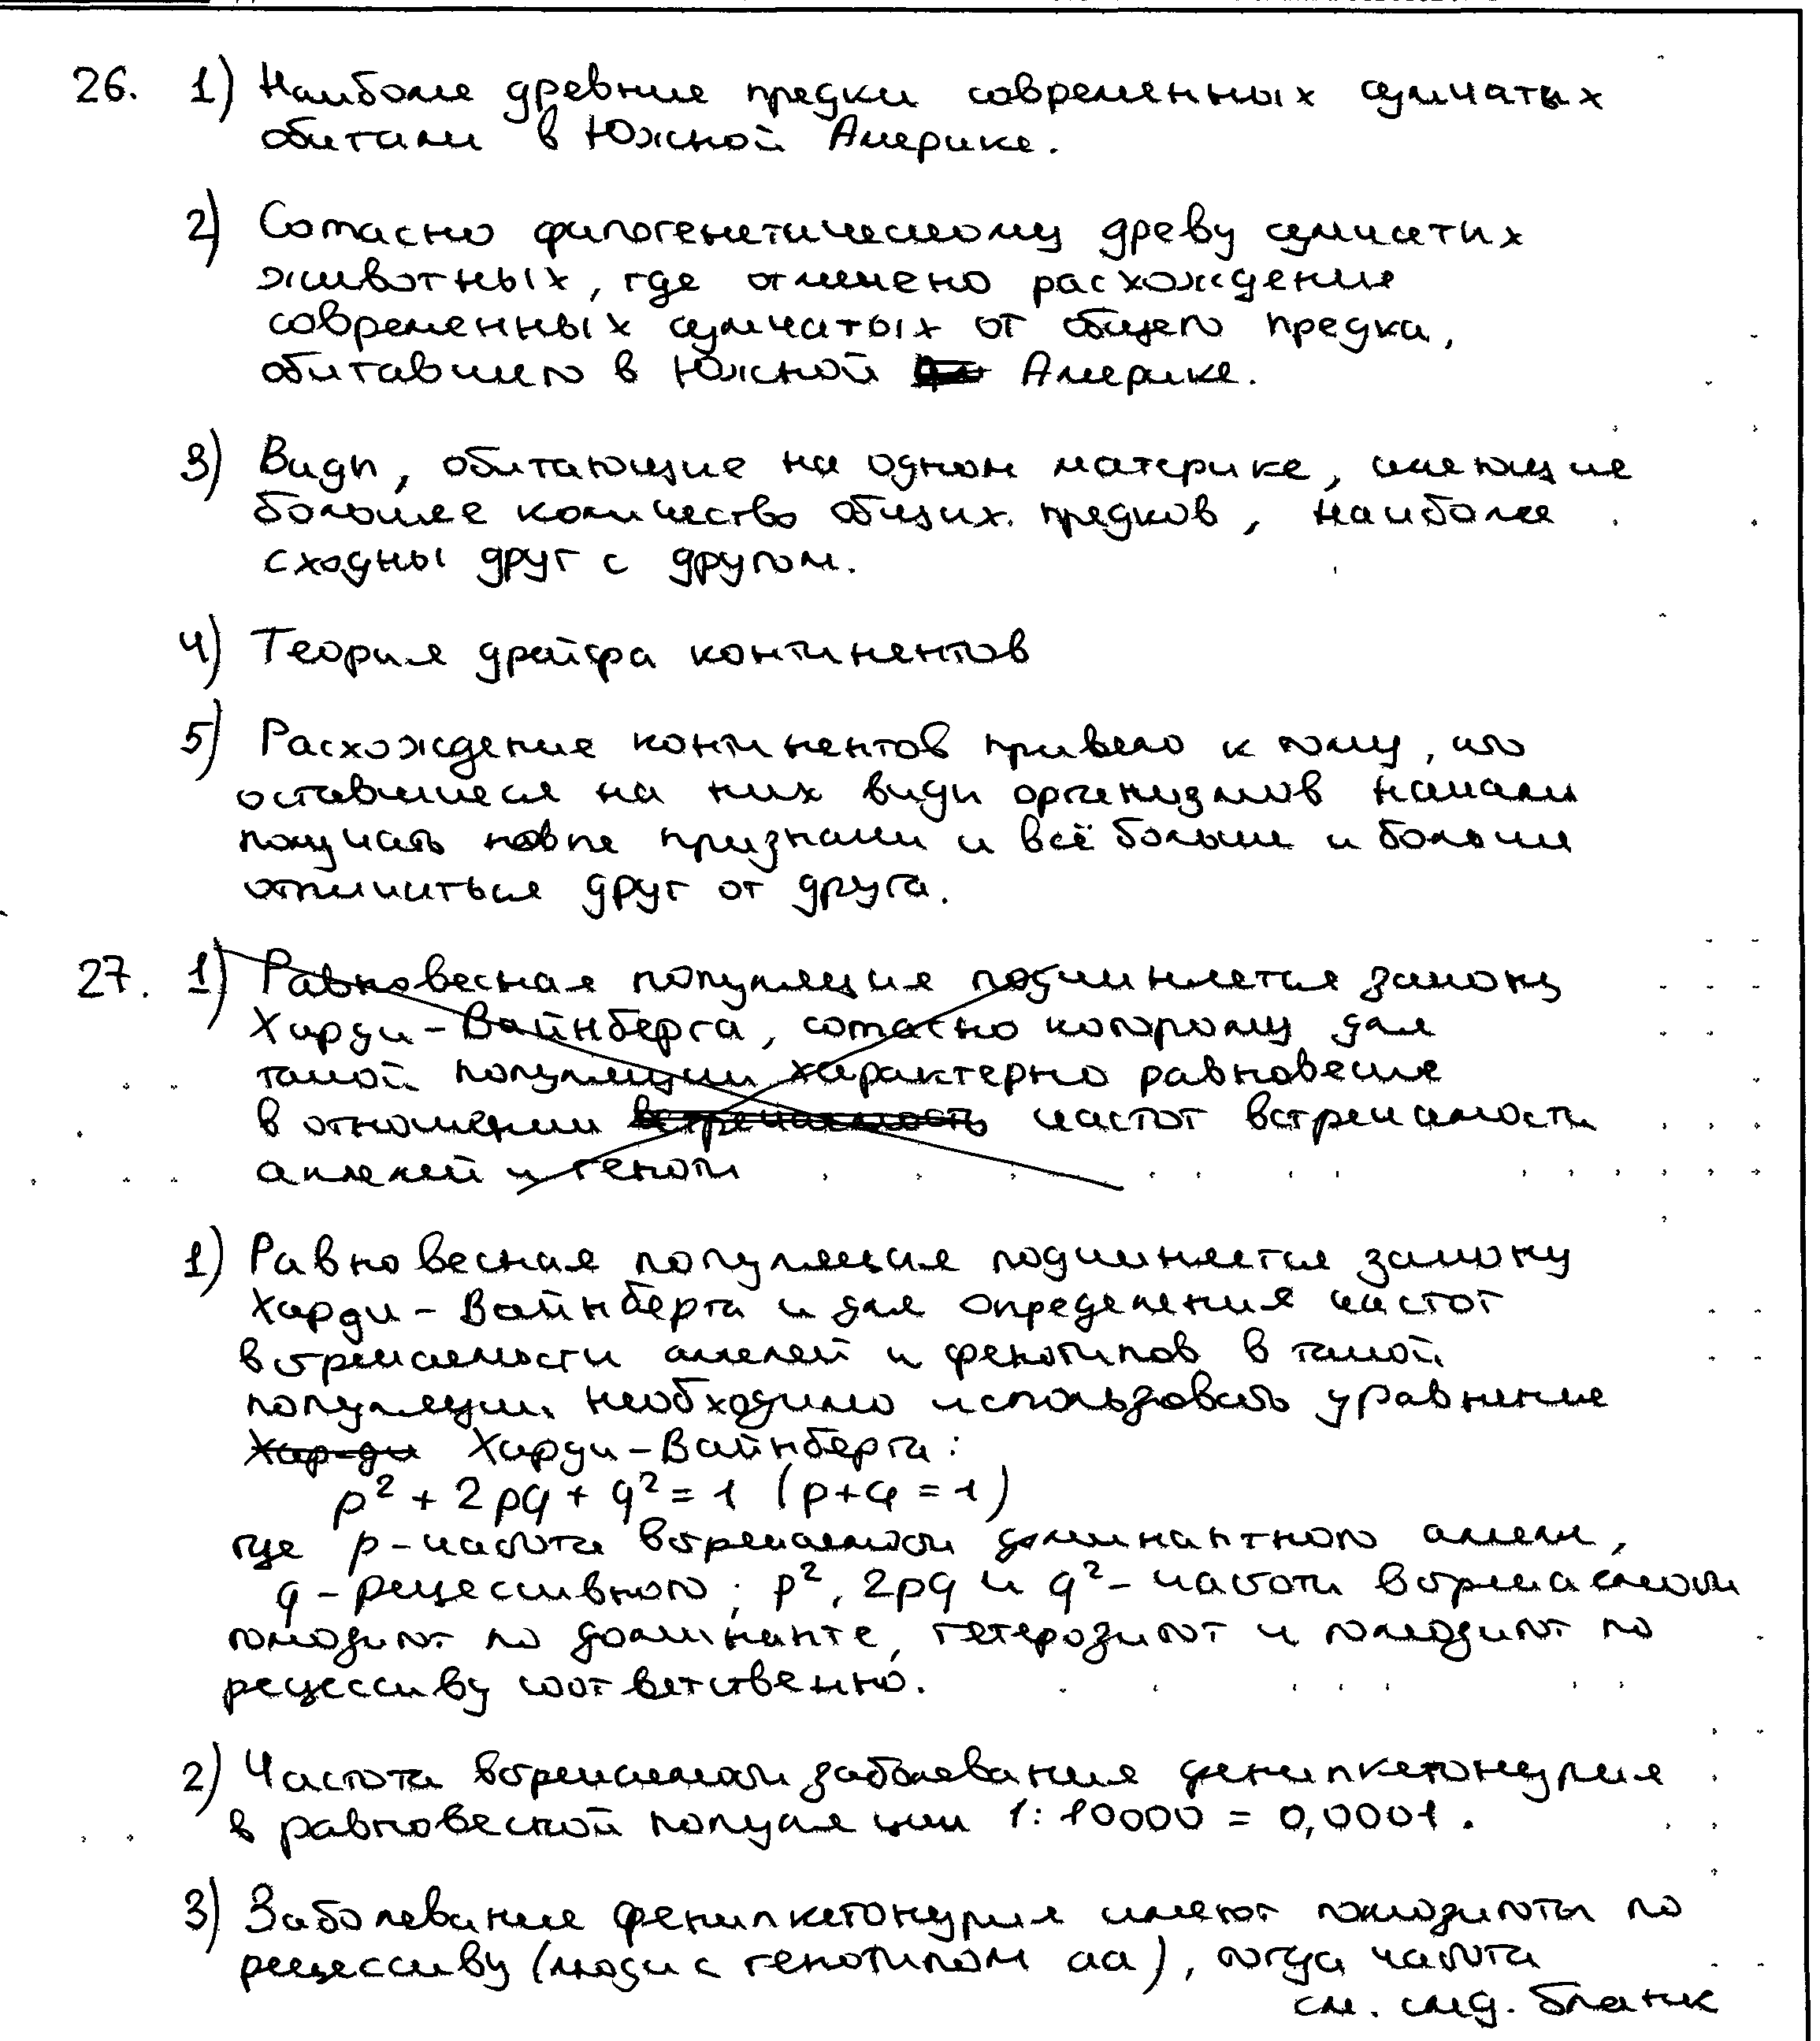 26. 1) Наиболе древние предки современных сумчатых
обитали в Южной Америке.
2) Согласно филогенетическому древу сумчатых
животных, где отмечено расхождение
современных сумчатых от общего предка,
обитавшего в Южной Америке.
3) Виды, обитающие на одном материке, имеющие
большее количество общих предков, наиболее
сходны друг с другом.
4) Теория дрейфа континентов
5) Расхождение континентов привело к тому, что
оставшиеся на них виды организмов начали
получать новые признаки и всё больше и больше
отличаться друг от друга.
27. 1) Равновесная популяция подчиняется закону
Харди-Вайнберга, согласно которому для
такой популяции характерно равновесие
в отношении встречаемость частот встречаемости
аллелей и геноти
1) Равновесная популяция подчиняется закону
Харди-Вайнберга и для определения частот
встречаемости аллелей и фенотипов в такой
популяции необходимо использовать уравнение
Харди Харди-Вайнберга:
p² + 2pq + q² = 1 (p+q = 1)
где p - частота встречаемости доминантного аллели,
q - рецессивного; p², 2pq и q² - частоты встречаемости
гомозигот по доминанте, гетерозигот и гомозигот по
рецессиву соответственно.
2) Частота встречаемости заболевания фенилкетонурия
в равновесной популяции 1:10000 = 0,0001.
3) Заболевание фенилкетонурия имеют гомозиготы по
рецессиву (люди с генотипом aa), тогда частота
см. след. бланк